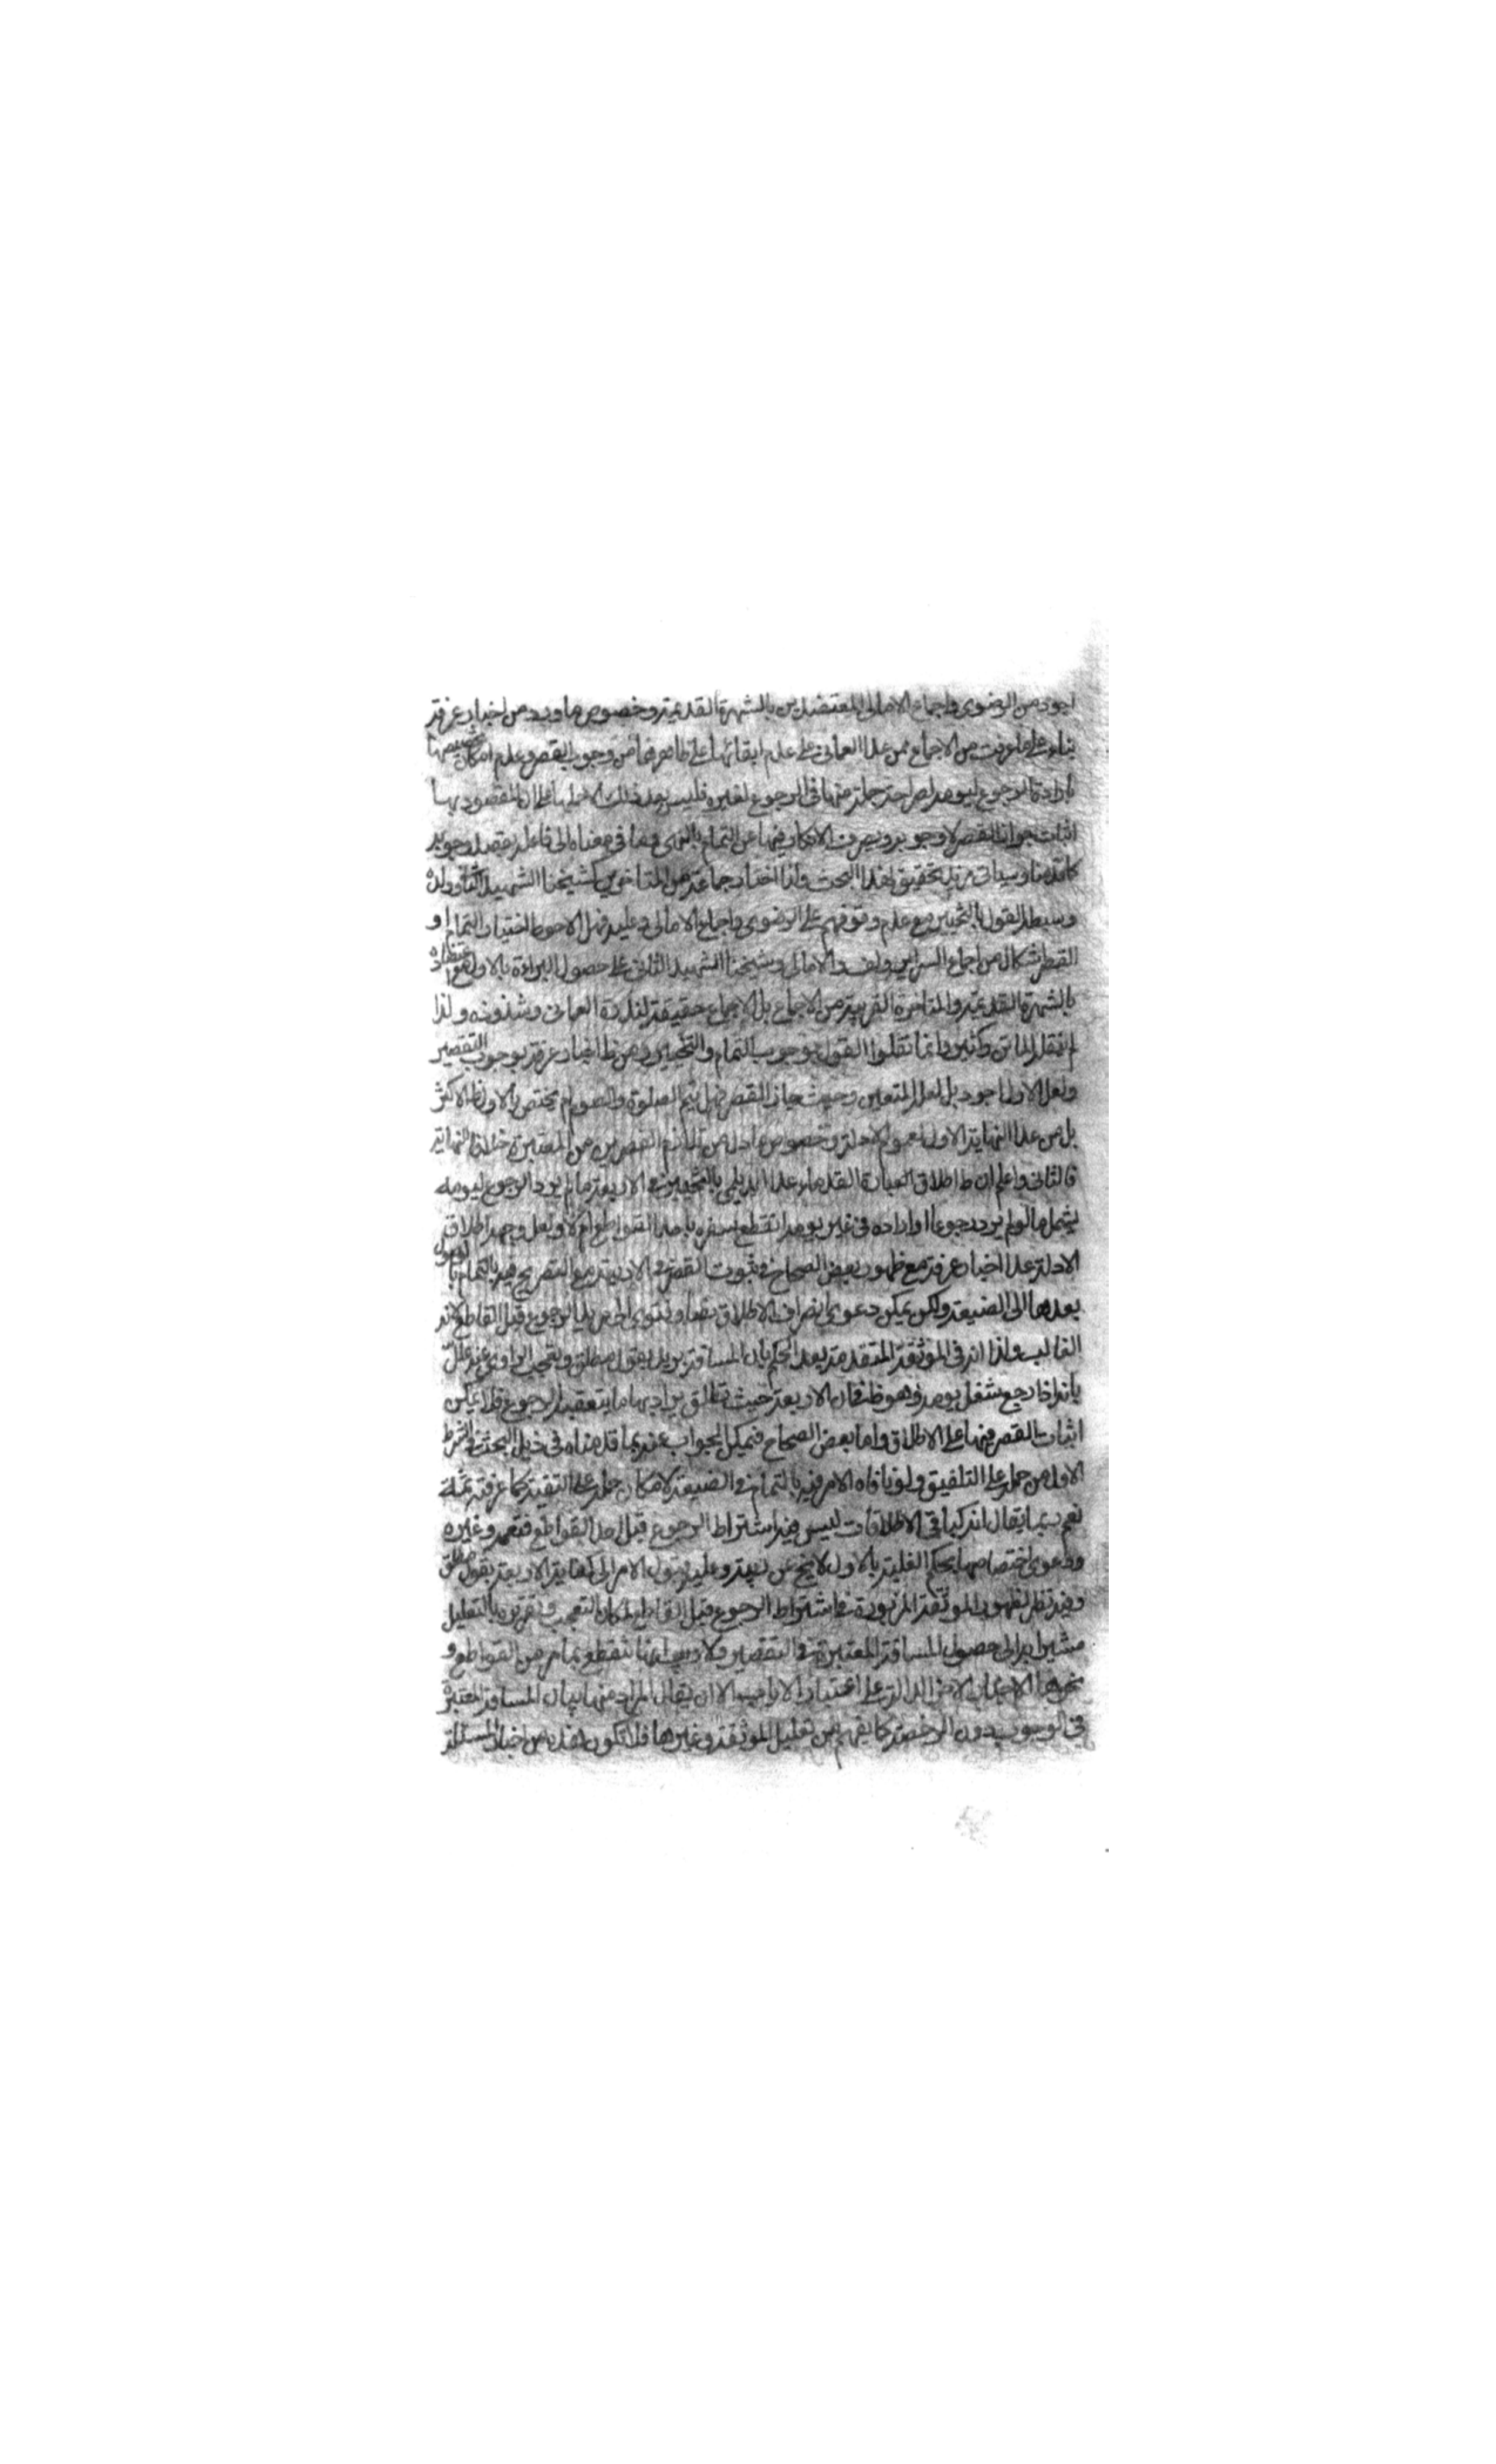 اجود من الرضوى واجماع الامالى المعتضدين بالشهرة القديمة وخصوص ما ورد من اخبار عرفة
بناء على ما عرفت من الاجماع ممن عدا العمانى على عدم ابقائها على ظاهرها من وجوب القصر وعدم امكان تخصيصها
بارادة الرجوع ليومه لصراحة جملة منها فى الرجوع لغيره فليس بعد ذلك الا حملها على ان المقصود بها
اثبات جواز القصر لا وجوبه وبصرف الانكار فيها عن التمام بالنهى وما فى معناه الى فاعله بقصد وجوبه
كما قدمنا وسياتى مزيد تحقيق لهذا البحث واذا اختار جماعة من المتاخرين كشيخنا الشهيد الثانى وولده
وسبطه القول بالتخيير مع عدم وقوفهم على الرضوى واجماع الامالى وعليه فهل الاحوط اختيار التمام او
القصر اشكال من اجماع السرائر ولف والامالى وشيخنا الشهيد الثانى على حصول البراءة بالاول مع اعتضاده
بالشهرة القديمة والمتاخرة القريبة من الاجماع بل الاجماع حقيقة لندرة العمانى وشذوذه ولذا
لم ينقله الماتن وكثير وانما نقلوا القول بوجوب التمام والتخيير ومن ظ اخبار عرفة بوجوب التقصير
ولعل الاول اجود بل لعله المتعين وحيث جاز القصر فهل يتم الصلوة والصوم ام يختص بالاول ظ الاكثر
بل من عدا النهاية الاول لعموم الادلة وخصوص ما دل من تلازم القصرين من المعتبرة خلافا للنهاية
فالثانى واعلم ان ظ اطلاق العبارة القدماء عدا الديلمى بالتخيير فى الاربعة ما لم يرد الرجوع ليومه
يشمل ما لو لم يرد رجوعا او اراده فى غير يومه انقطع سفره باحد القواطع ام لا ولعل وجهه اطلاق
الادلة عدا اخبار عرفة مع ظهور بعض الصحاح فى ثبوت القصر فى الاربعة مع التصريح فيه بالتمام بالوصول
بعدها الى الضيعة ولكن يمكن دعوى انصراف الاطلاق نصا وفتوى الى مريد الرجوع قبل القاطع لانه
الغالب ولذا انه فى الموثقة المتقدمة بعد الحكم بان المسافة بريد بقول مطلق وتعجب الراوى عنه علل
بانه اذا رجع شغل يومه وهو ظ فى ان الاربعة حيث تطلق يراد بها ما يتعقبه الرجوع فلا يمكن
اثبات القصر منها على الاطلاق واما بعض الصحاح فيمكن الجواب عنه بما قدمناه فى ذيل البحث فى الشرط
الاول من حمله على التلفيق ولو نافاه الامر فيه بالتمام فى الضيعة لامكان حمله على التقية كما عرفته ثمة
نعم ربما يقال انه كباقى الاطلاقات ليس فيه اشتراط الرجوع قبل احد القواطع فتعمه وغيره
ودعوى اختصاصها بحكم الغلبة بالاول لا يخ عن ريبة وعليه يؤول الامر الى كفاية الاربعة بقول مطلق
وفيه نظر لظهور الموثقة المزبورة فى اشتراط الرجوع قبل القاطع لمكان التعجب وتقريره بالتعليل
مشيرا به الى حصول المسافة المعتبرة فى التقصير ولا ريب انها تنقطع بما مر من القواطع و
نحوها الاخبار الاخر الدالة على اعتبار الاياب الا ان يقال المراد منها بيان المسافة المعتبرة
فى الوجوب دون الرخصة كما يفهم من تعليل الموثقة وغيرها فلا تكون هذه من اخبار المسئلة